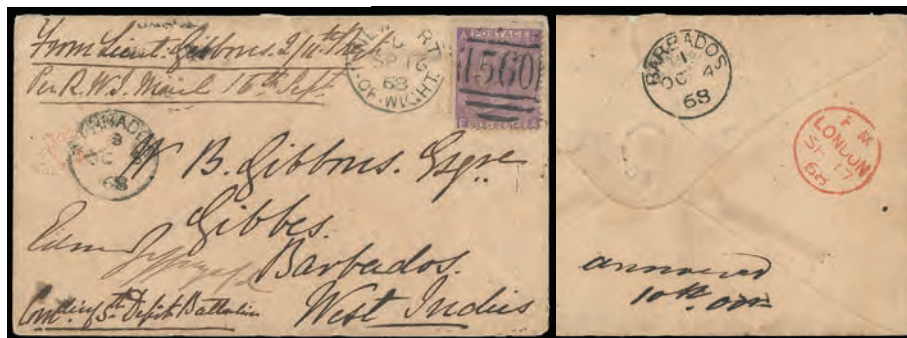 From Lieut. Gibbons. 2/11th Regt
Per R.W.I. Mail 16th Sept.
RT
SP 16
68
OF WIGHT.
POSTAGE
1560
BARBADOS
68
W B. Gibbons. Esqre.
Gibbes.
Barbados.
West Indies
Comding 5th Depôt Battalion
BARBADOS
OC 4
68
LONDON
SP 17
68
answered
10th Octr